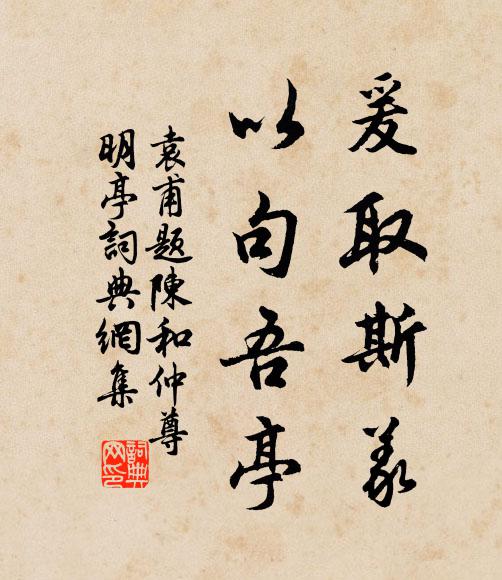 爰取斯義
以句吾亭
袁甫題陳和仲尊
明亭詞典網集
詞典
网印